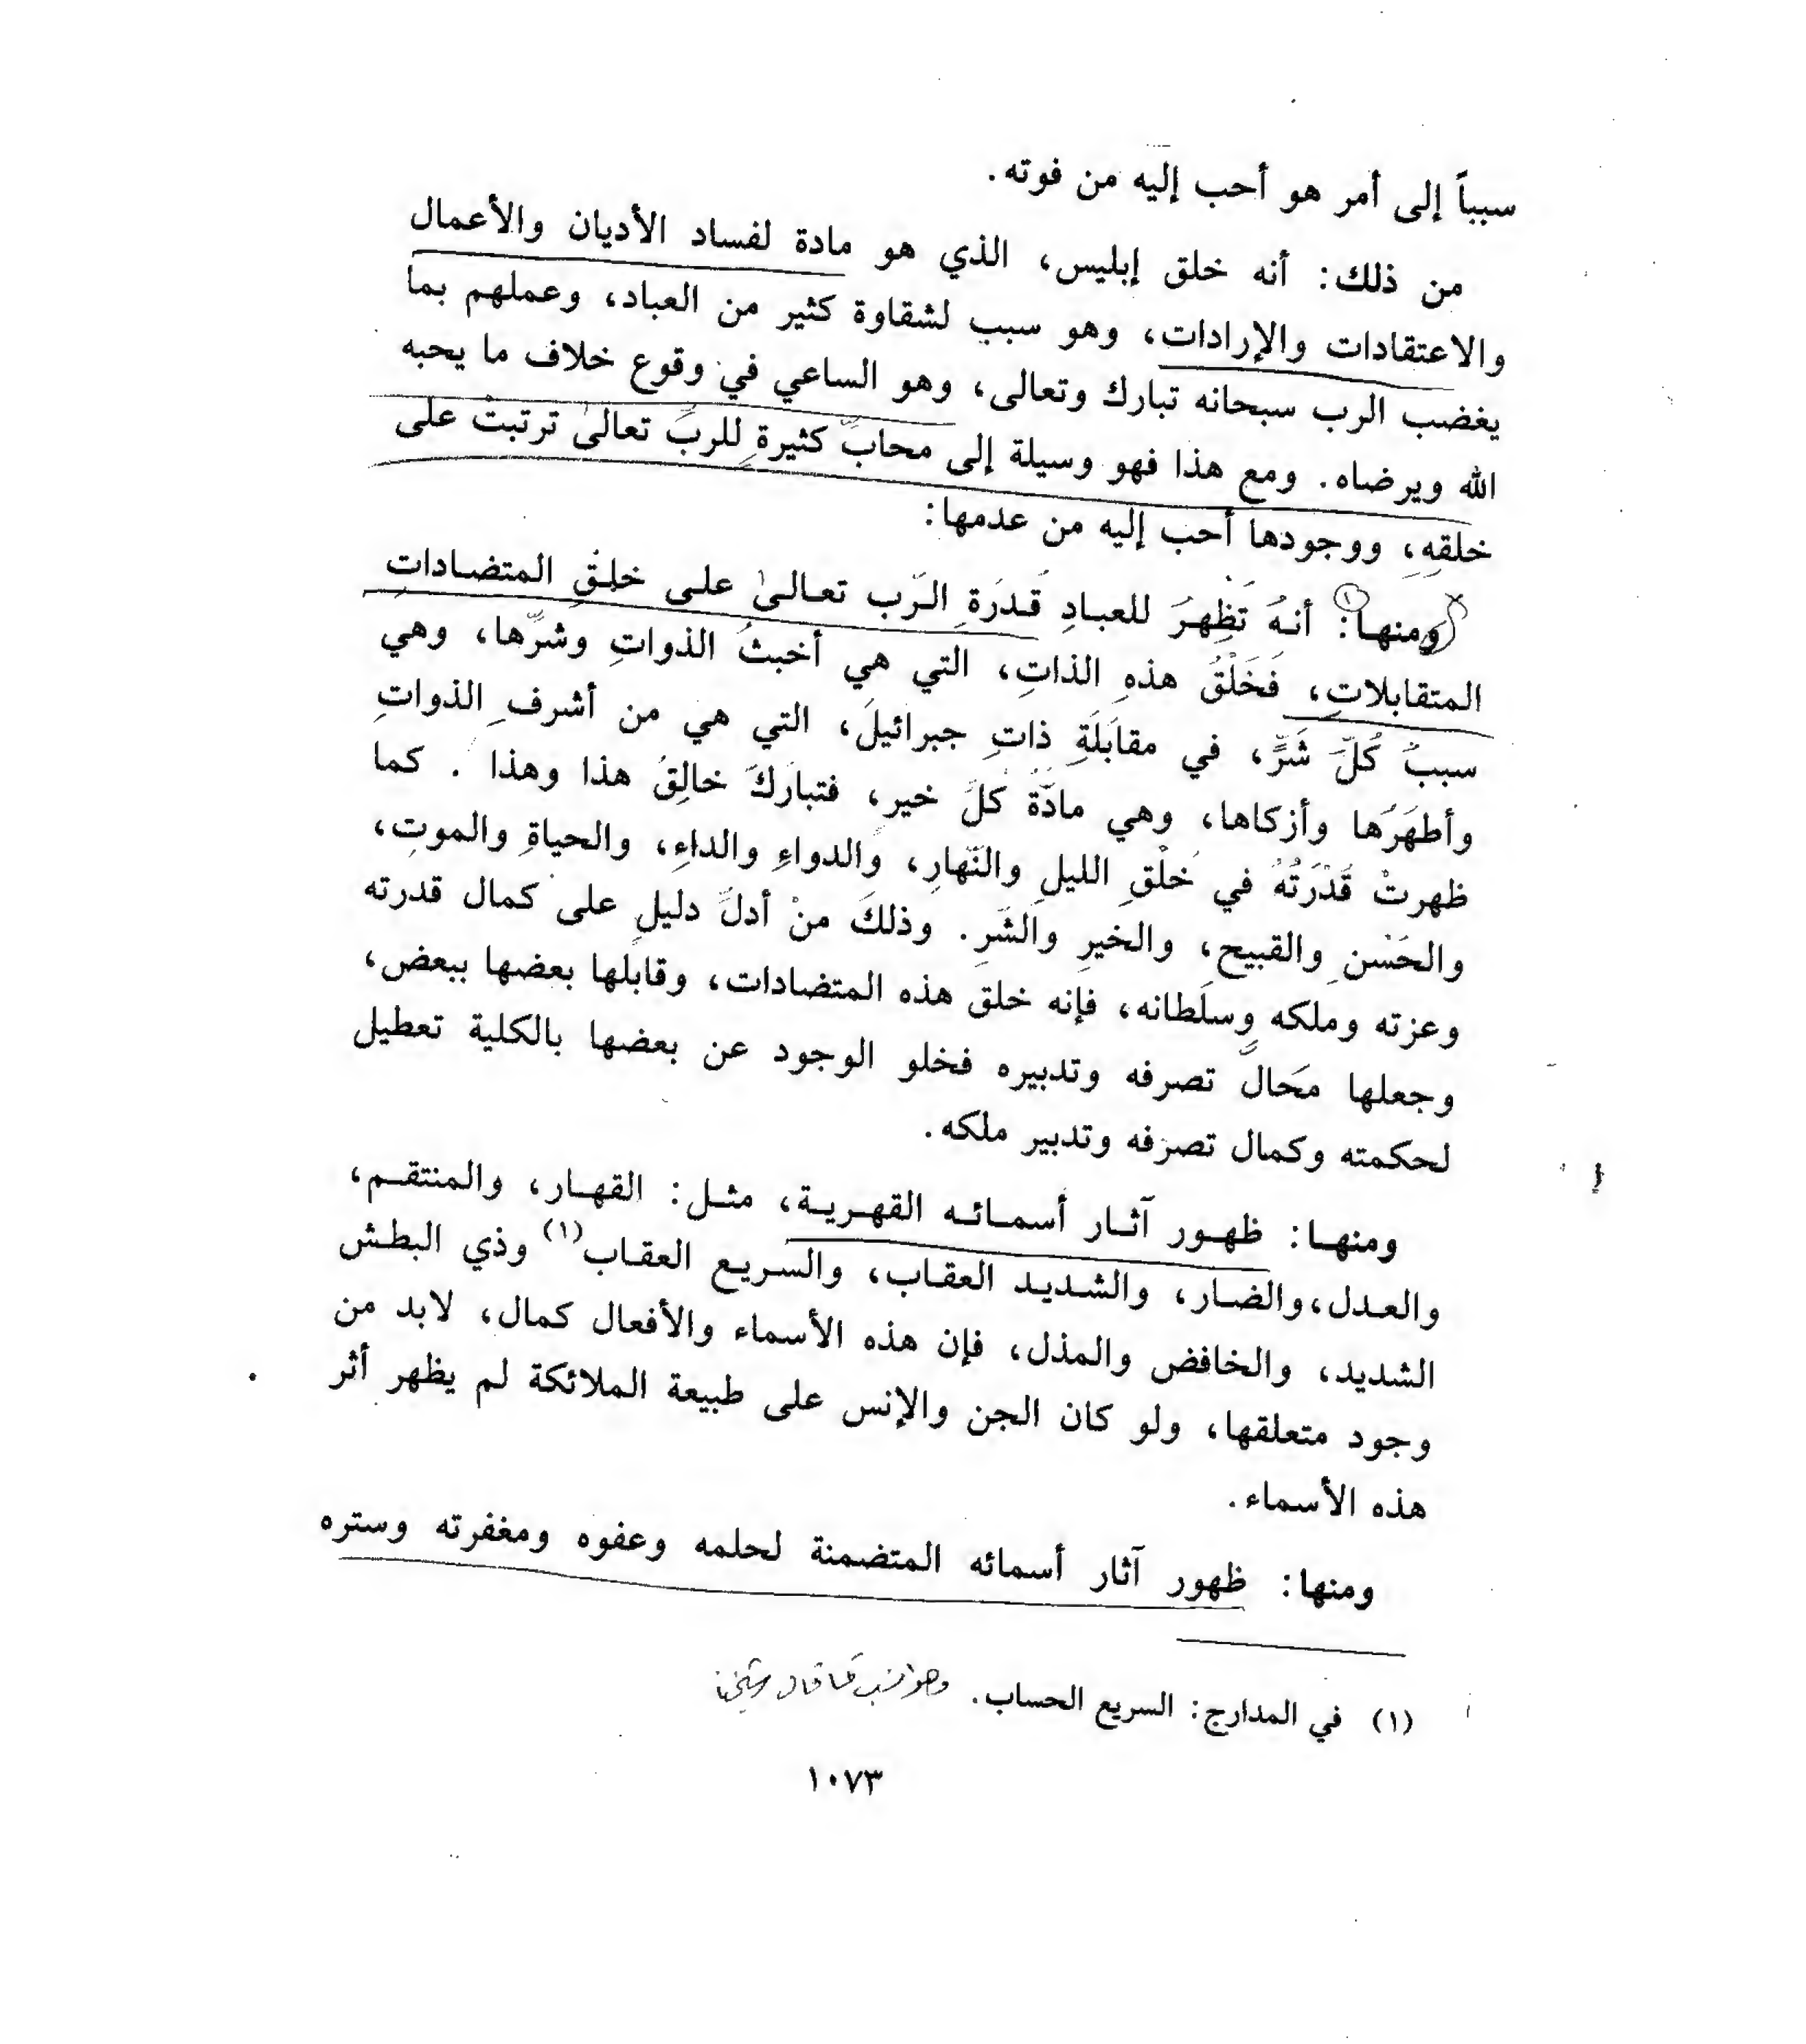 سبباً إلى أمر هو أحب إليه من فوته.
من ذلك: أنه خلق إبليس، الذي هو مادة لفساد الأديان والأعمال
والاعتقادات والإرادات، وهو سبب لشقاوة كثير من العباد، وعملهم بما
يغضب الرب سبحانه تبارك وتعالى، وهو الساعي في وقوع خلاف ما يحبه
الله ويرضاه. ومع هذا فهو وسيلة إلى محابّ كثيرةٍ للربَ تعالىٰ ترتبتْ على
خلقِهِ، ووجودها أحب إليه من عدمها:
ومنها: أنهُ تَظهرَ للعبادِ قَدرَةِ الرَّب تعالىٰ على خلقِ المتضاداتِ
المتقابلاتِ، فَخَلْقُ هذهِ الذاتِ، التي هي أخبثُ الذواتِ وشرّها، وهي
سببُ كُلِّ شَرٍّ، في مقابَلَةِ ذاتِ جبرائيلَ، التي هي من أشرفِ الذواتِ
وأطهَرَها وأزكاها، وهي مادّةُ كلَ خير، فتبارَكَ خالِقُ هذا وهذا . كما
ظهرتْ قَدْرَتُهُ في خَلْقِ الليلِ والنّهارِ، والدواءِ والداءِ، والحياةِ والموتِ،
والحَسْنِ والقبيح، والخيرِ والشَرِ. وذلكَ منْ أدلَّ دليلٍ على كمال قدرته
وعزته وملكه وسلَطانه، فإنه خلق هذه المتضادات، وقابلها بعضها ببعض،
وجعلها مَحالّ تصرفه وتدبيره فخلو الوجود عن بعضها بالكلية تعطيل
لحكمته وكمال تصرفه وتدبير ملكه.
ومنهـا: ظهـور آثـار أسمـائـه القهـريـة، مثـل: القهـار، والمنتقـم،
والعدل،والضار، والشديد العقاب، والسريع العقاب(١) وذي البطش
الشديد، والخافض والمذل، فإن هذه الأسماء والأفعال كمال، لابد من
وجود متعلقها، ولو كان الجن والإنس على طبيعة الملائكة لم يظهر أثر
هذه الأسماء.
ومنها: ظهور آثار أسمائه المتضمنة لحلمه وعفوه ومغفرته وستره
(١) في المدارج: السريع الحساب. وهو انسب كما قال شيخنا
١٠٧٣